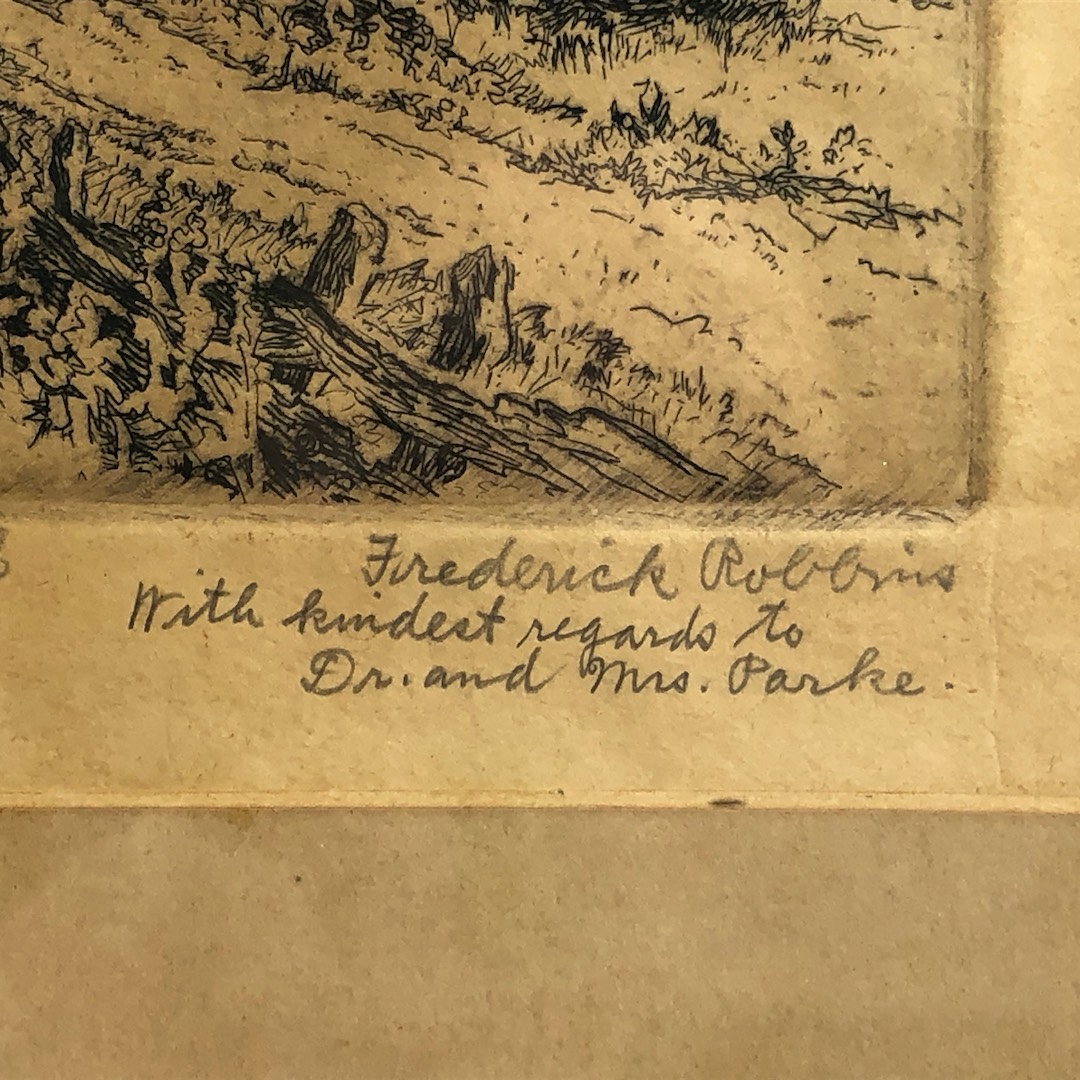 Frederick Robbins
With kindest regards to
Dr. and Mrs. Parke.